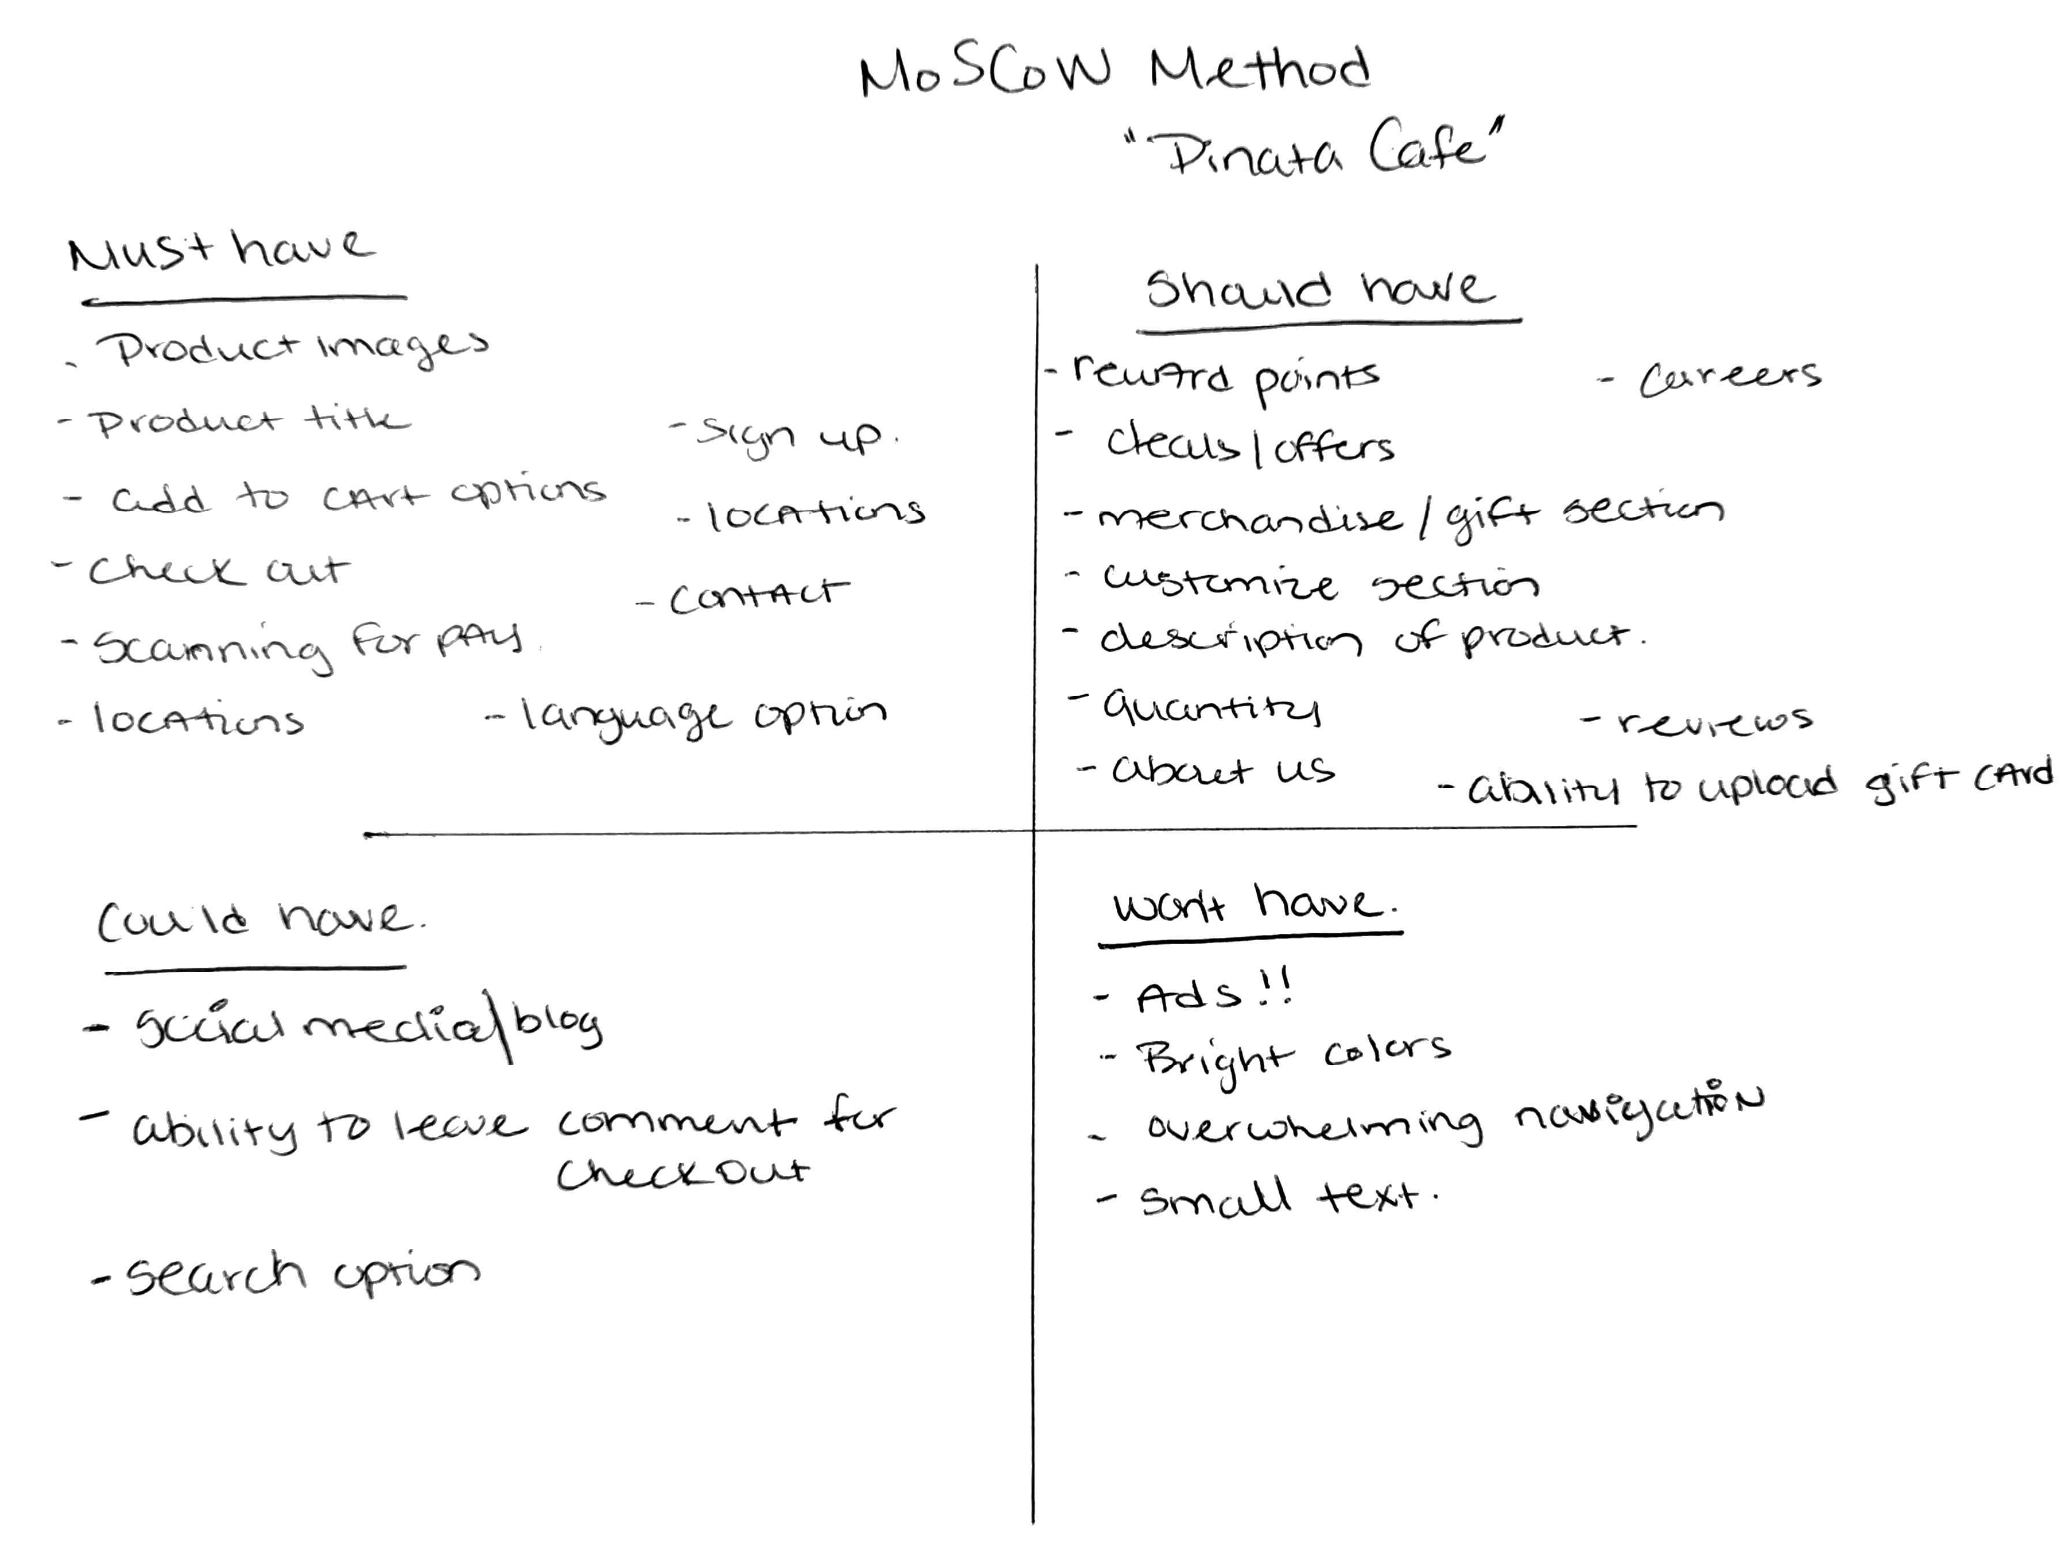 MoSCoW Method
"Pinata Cafe"
Must have
- Product images
- Product title
- add to cart options
- Check out
- Scanning for pay.
- locations
- Sign up.
- locations
- contact
- language option
Should have
- reward points
- deals/offers
- merchandise/gift section
- customize section
- description of product.
- Quantity
- about us
- careers
- reviews
- ability to upload gift card
Could have.
- social media/blog
- ability to leave comment for
checkout
- search option
won't have.
- Ads!!
- Bright colors
- overwhelming navigation
- small text.